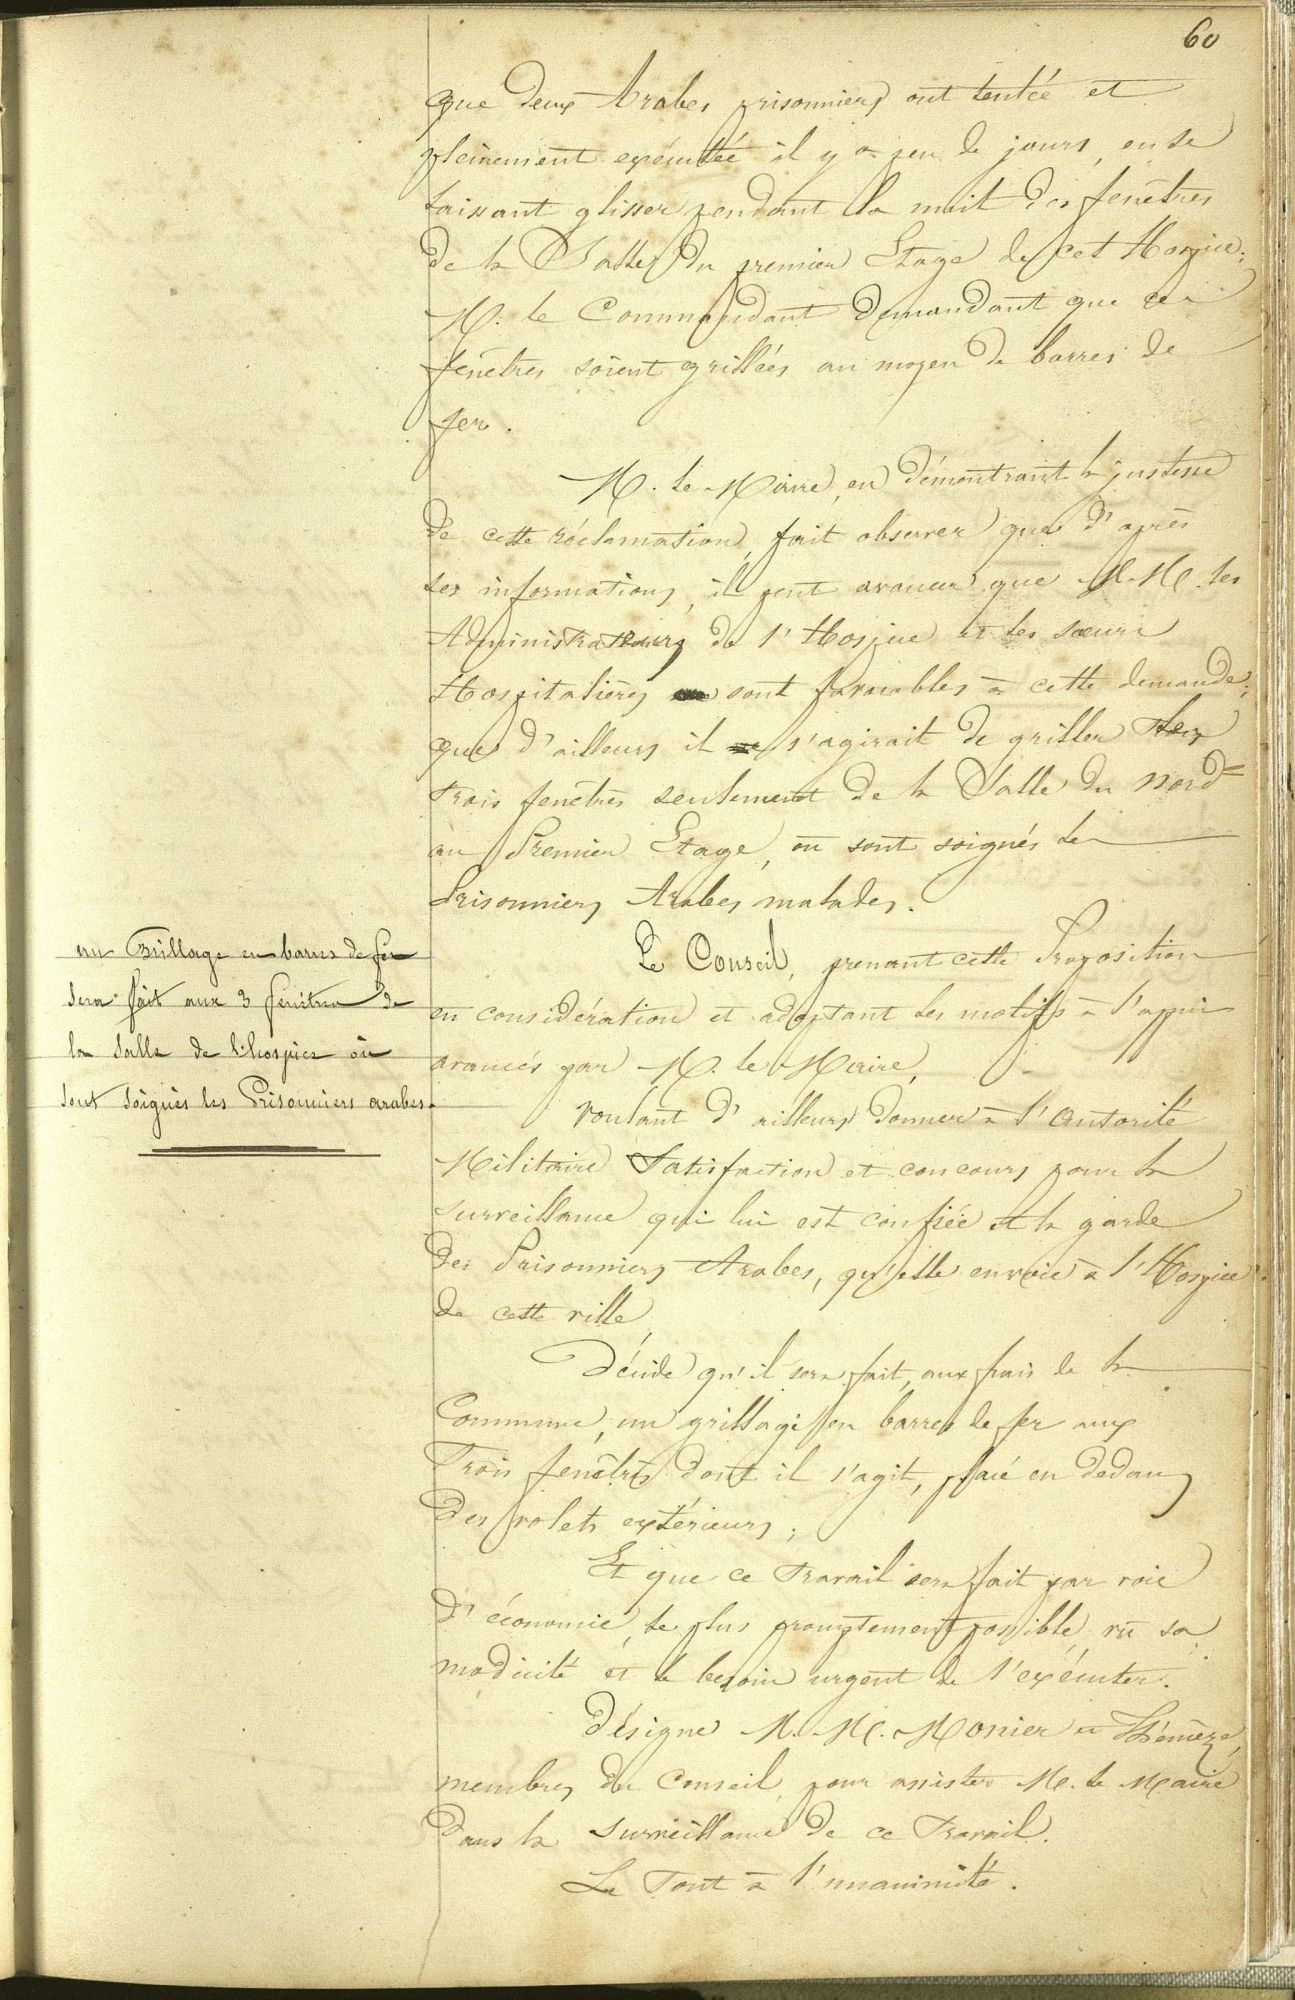 60
que deux Arabes prisonniers ont tentée et
pleinement exécutée il y a peu de jours, en se
laissant glisser pendant la nuit des fenêtres
de la Salle du premier Etage de cet Hospice;
M. le Commandant demandant que ces
fenêtres soient grillées au moyen de barres de
fer.
M. le Maire, en démontrant la justesse
de cette réclamation, fait observer que d'après
ses informations, il peut avancer que M.M. les
Administrateurs de l'Hospice et les sœurs
Hospitalières sont favorables à cette demande;
que d'ailleurs il s'agirait de griller les
trois fenêtres seulement de la Salle du Nord
au Premier Etage, où sont soignés les
Prisonniers Arabes malades.
un Grillage en barres de fer
sera fait aux 3 fenêtres de
la Salle de l'hospice où
sont soignés les Prisonniers arabes.
Le Conseil, prenant cette Proposition
en considération et adoptant les motifs à l'appui
avancés par M. le Maire,
voulant d'ailleurs donner à l'autorité
Militaire Satisfaction et concours pour la
surveillance qui lui est confiée et la garde
des Prisonniers Arabes, qu'elle envoie à l'Hospice
de cette ville,
Décide qu'il sera fait, aux frais de la
Commune, un grillage en barres de fer aux
Trois fenêtres dont il s'agit, placé en dedans
des volets extérieurs;
Et que ce Travail sera fait par voie
d'économie, le plus promptement possible, vu sa
modicité et le besoin urgent de l'exécuter.
Désigne M.M. Monier et
membres du Conseil, pour assister M. le Maire
dans la surveillance de ce Travail.
Le Tout à l'unanimité.